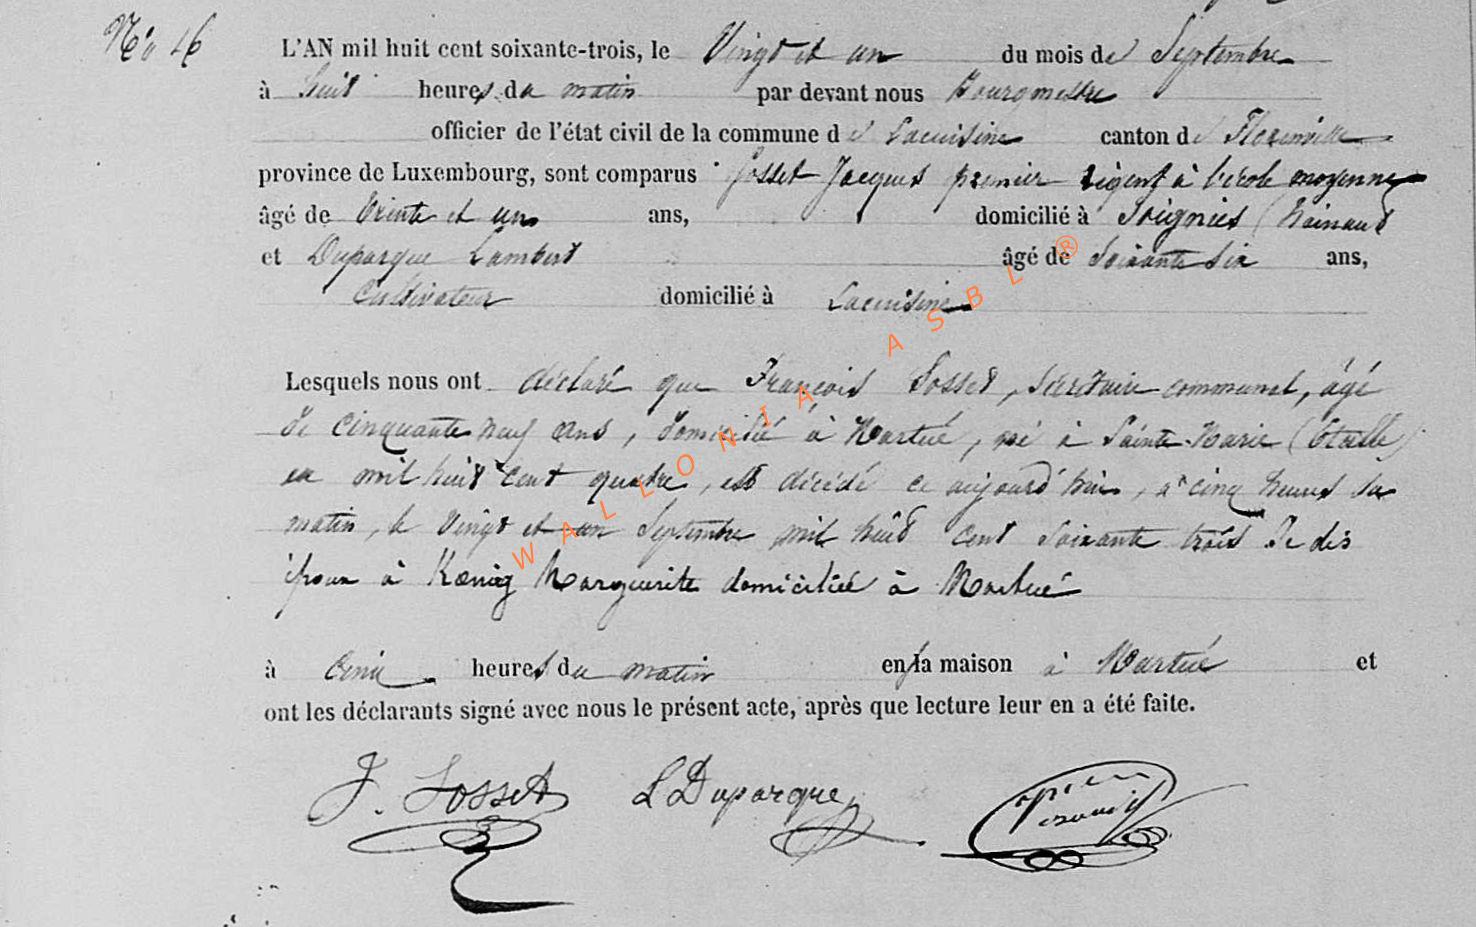 N° 16
L'AN mil huit cent soixante-trois, le Vingt et un du mois de Septembre
à huit heures du matin par devant nous Bourgmestre
officier de l'état civil de la commune de Lacuisine canton de Florenville
province de Luxembourg, sont comparus Josset Jacques premier régent à l'école moyenne
âgé de trente et un ans, domicilié à Soignies (hainaut
et Duparque Lambert âgé de Soixante six ans,
Cultivateur domicilié à Lacuisine
Lesquels nous ont déclaré que François Sosset, secrétaire communal, âgé
de cinquante neuf ans, domicilié à Martué, né à Sainte-Marie (Étalle)
en mil huit cent quatre, est décédé ce aujourd'hui, à cinq heures du
matin, le Vingt et un Septembre mil huit cent soixante trois Le dit
époux à Kœnig Marguerite domiciliée à Martué
à Cinq heures du matin en la maison à Martué et
ont les déclarants signé avec nous le présent acte, après que lecture leur en a été faite.
J. Sosset L Duparque
WALLONIA ASBL ®